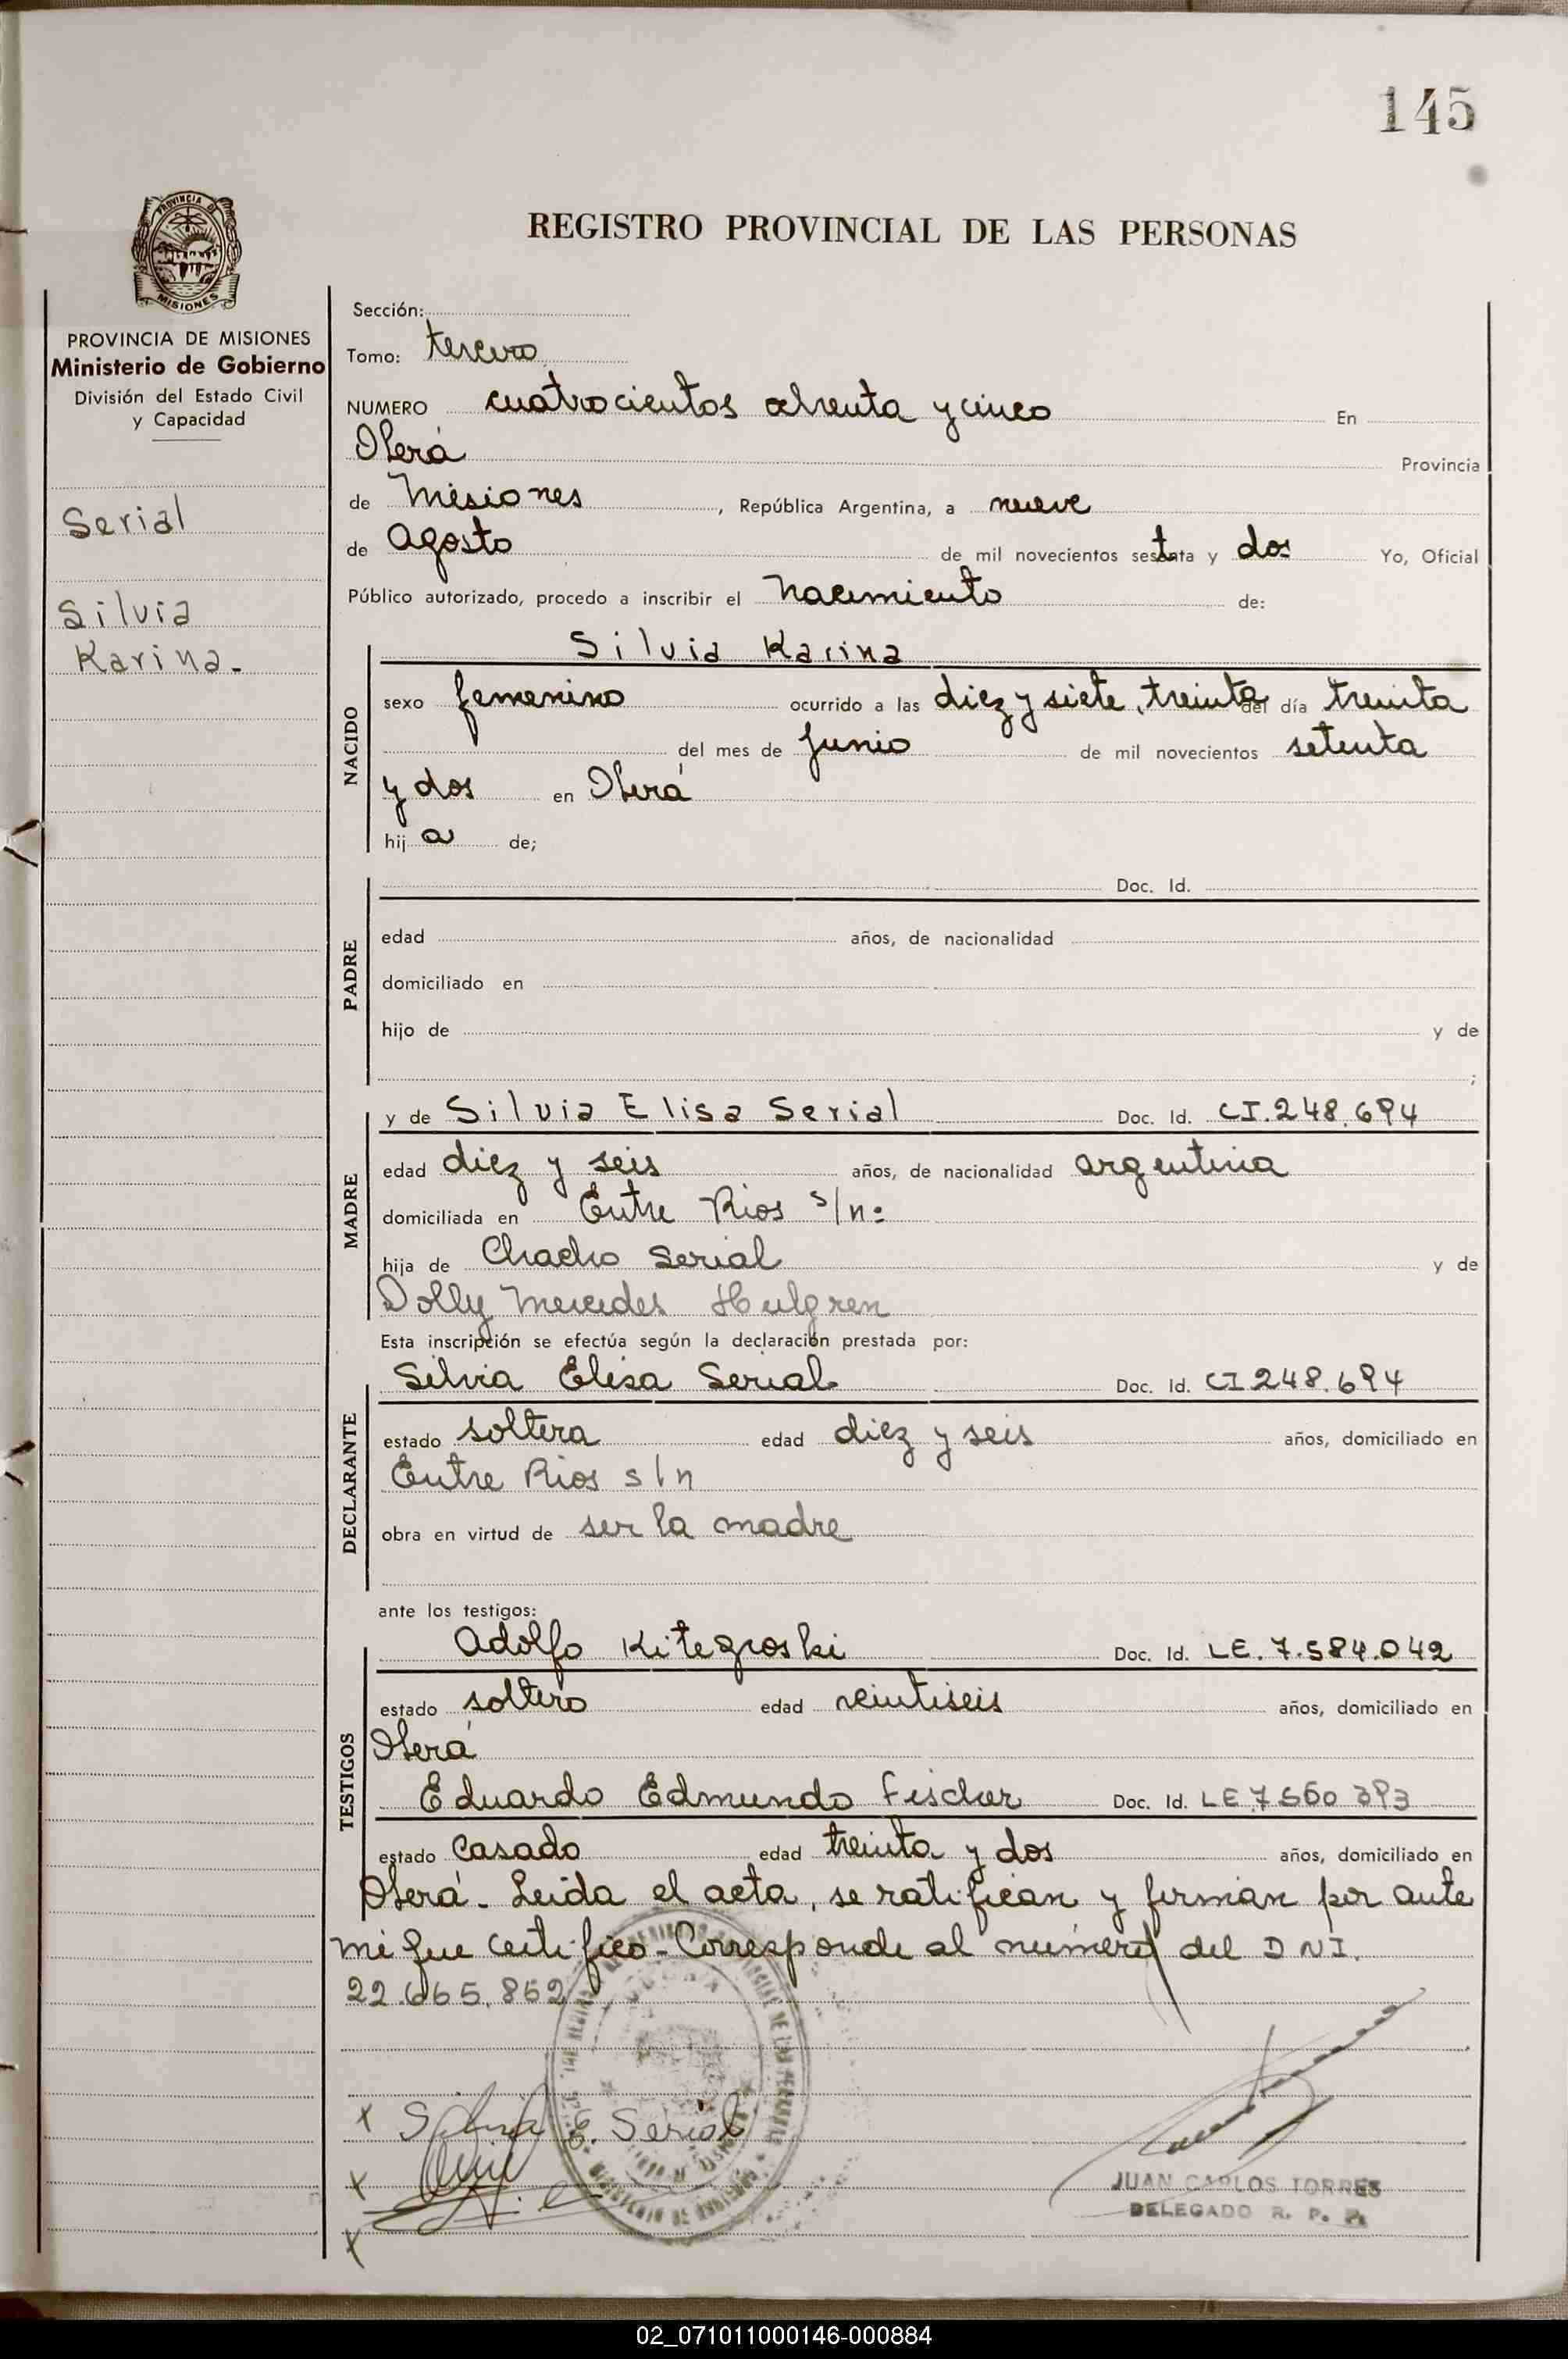 145
PROVINCIA DE
MISIONES
REGISTRO PROVINCIAL DE LAS PERSONAS
PROVINCIA DE MISIONES
Ministerio de Gobierno
División del Estado Civil
y Capacidad
Serial
Silvia
Karina.-
Sección:
Tomo: tercero
NUMERO cuatrocientos ochenta y cinco En
Oberá Provincia
de Misiones, República Argentina, a nueve
de Agosto de mil novecientos setenta y dos Yo, Oficial
Público autorizado, procedo a inscribir el Nacimiento de:
Silvia Karina
NACIDO
sexo femenino ocurrido a las diez y siete, treinta del día treinta
del mes de Junio de mil novecientos setenta
y dos en Oberá
hija de;
PADRE
Doc. Id.
edad años, de nacionalidad
domiciliado en
hijo de y de
;
MADRE
y de Silvia Elisa Serial Doc. Id. CI.248.694
edad diez y seis años, de nacionalidad argentina
domiciliada en Entre Rios s/n:
hija de Chacho Serial y de
Dolly Mercedes Hulgren
Esta inscripción se efectúa según la declaración prestada por:
DECLARANTE
Silvia Elisa Serial Doc. Id. CI 248.694
estado soltera edad diez y seis años, domiciliado en
Entre Rios s/n
obra en virtud de ser la madre
ante los testigos:
TESTIGOS
Adolfo Kitegroski Doc. Id. LE. 7.584.042
estado soltero edad veintiseis años, domiciliado en
Oberá
Eduardo Edmundo Fischer Doc. Id. LE.7560 393
estado casado edad treinta y dos años, domiciliado en
Oberá.- Leida el acta, se ratifican y firman por ante
mi que certifico.- Corresponde al número del D N I.
22.665.862
x Silvia E. Serial
x
x
JUAN CARLOS TORRES
DELEGADO R. P. P.
02_071011000146-000884